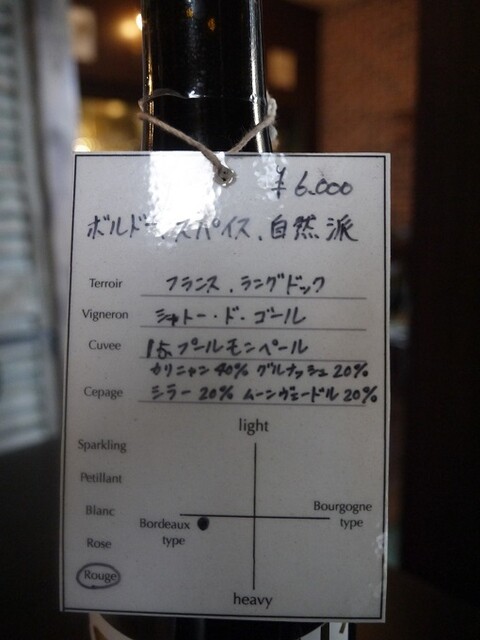 ¥6.000
ボルドースパイス、自然派
Terroir フランス、ラングドック
Vigneron シャトー・ド・ゴール
Cuvee プールモンペール
カリニャン 40% グルナッシュ 20%
Cepage シラー 20% ムーンヴェードル 20%
light
Sparkling
Petillant
Blanc
Bordeaux type
Bourgogne type
Rose
Rouge
heavy